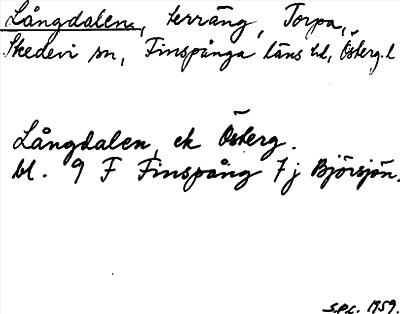 Långdalen, terräng, Torpa,
Skedevi sn, Finspånga läns hd, Österg. l
Långdalen, ek Österg.
bl. 9 F Finspång 7 j Björsjön.
S.P.C. 1959.